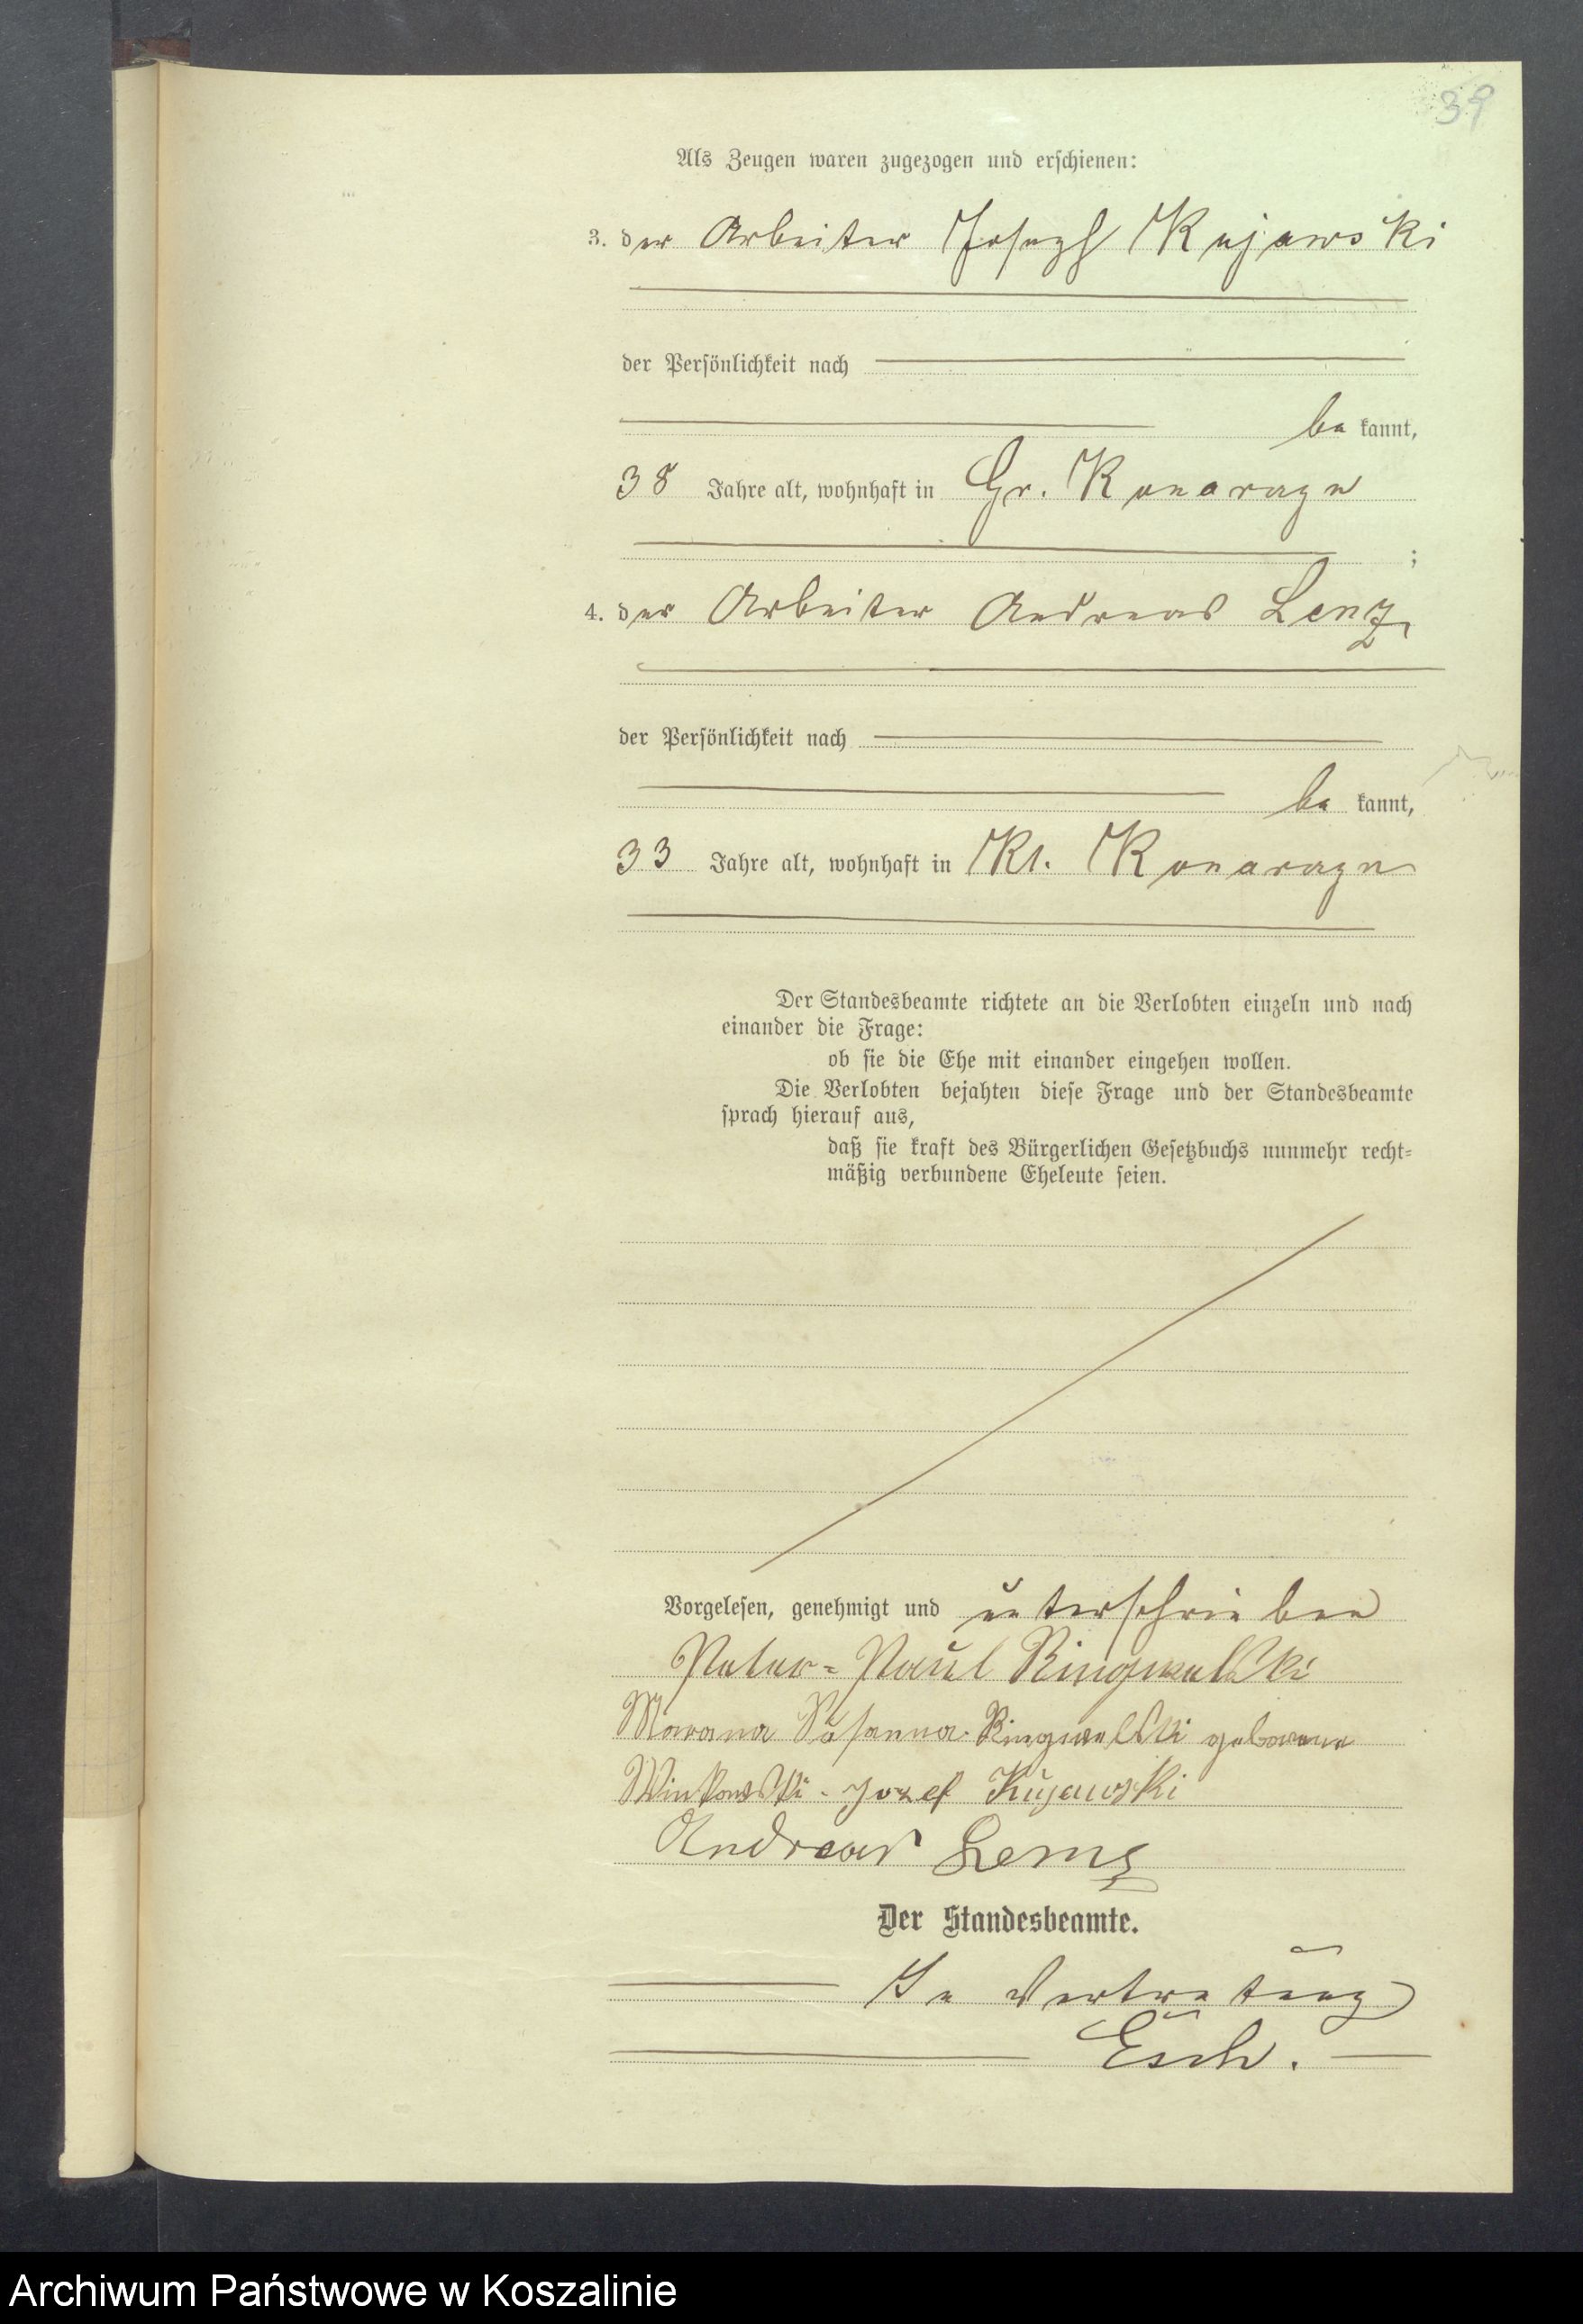 39
Als Zeugen waren zugezogen und erschienen:
3. der Arbeiter Joseph Kujawski
der Persönlichkeit nach
be kannt,
38 Jahre alt, wohnhaft in Gr. Konarczyn
;
4. der Arbeiter Andreas Lenz
der Persönlichkeit nach
be kannt,
33 Jahre alt, wohnhaft in Kl. Konarczyn
Der Standesbeamte richtete an die Verlobten einzeln und nach
einander die Frage:
ob sie die Ehe mit einander eingehen wollen.
Die Verlobten bejahten diese Frage und der Standesbeamte
sprach hierauf aus,
daß sie kraft des Bürgerlichen Gesetzbuchs nunmehr recht-
mäßig verbundene Eheleute seien.
Vorgelesen, genehmigt und unterschrieben
Peter-Paul Ringwelski
Susanna Ringwelski geborene
Winkowski. Jozef Kujawski
Andreas
Der Standesbeamte.
In Vertretung
Esch.
Archiwum Państwowe w Koszalinie